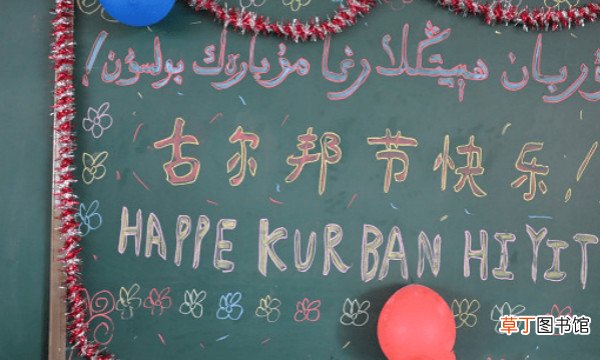 ۇربان ھېيتىڭلارغا مۇبارەك بولسۇن!
古尔邦节快乐!
HAPPE KURBAN HIYIT
草丁图书馆